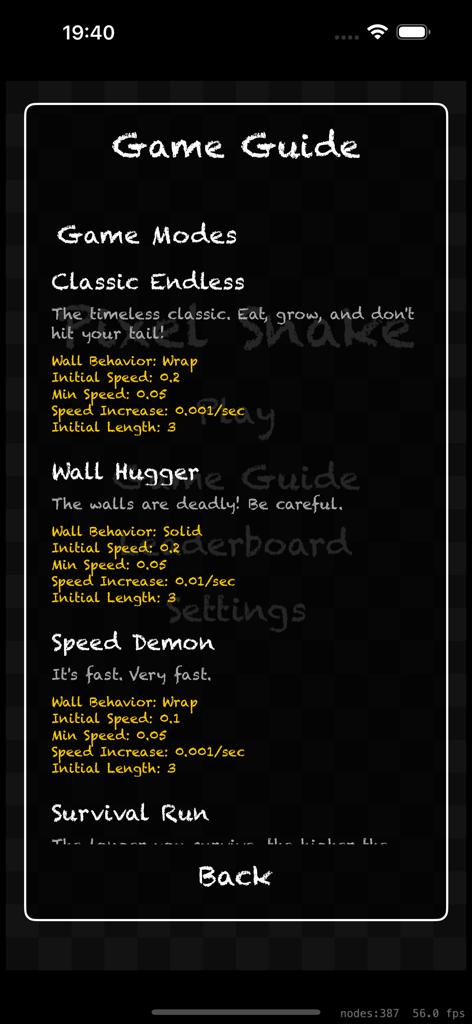 19:40
Game Guide
Game Modes
Classic Endless
The timeless classic. Eat, grow, and don't
hit your tail!
Pixel Snake
Wall Behavior: Wrap
Initial Speed: 0.2
Min Speed: 0.05
Speed Increase: 0.001/sec
Initial Length: 3
Play
Wall Hugger
Game Guide
The walls are deadly! Be careful.
Wall Behavior: Solid
Initial Speed: 0.2
Leaderboard
Min Speed: 0.05
Speed Increase: 0.01/sec
Initial Length: 3
Settings
Speed Demon
It's fast. Very fast.
Wall Behavior: Wrap
Initial Speed: 0.1
Min Speed: 0.05
Speed Increase: 0.001/sec
Initial Length: 3
Survival Run
The longer you survive, the higher the
Back
nodes:387 56.0 fps